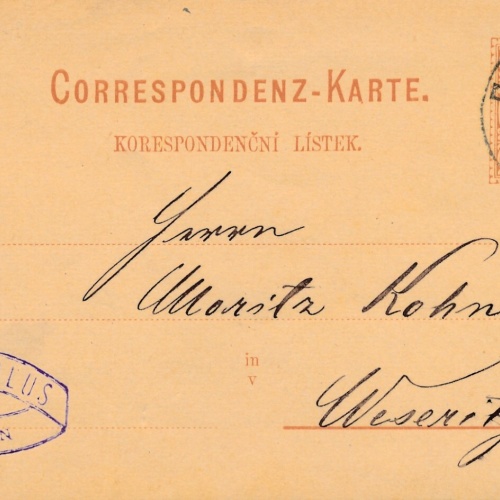 CORRESPONDENZ-KARTE.
KORESPONDENČNÍ LÍSTEK.
Herrn
Moritz Kohn
in
v
Weseritz